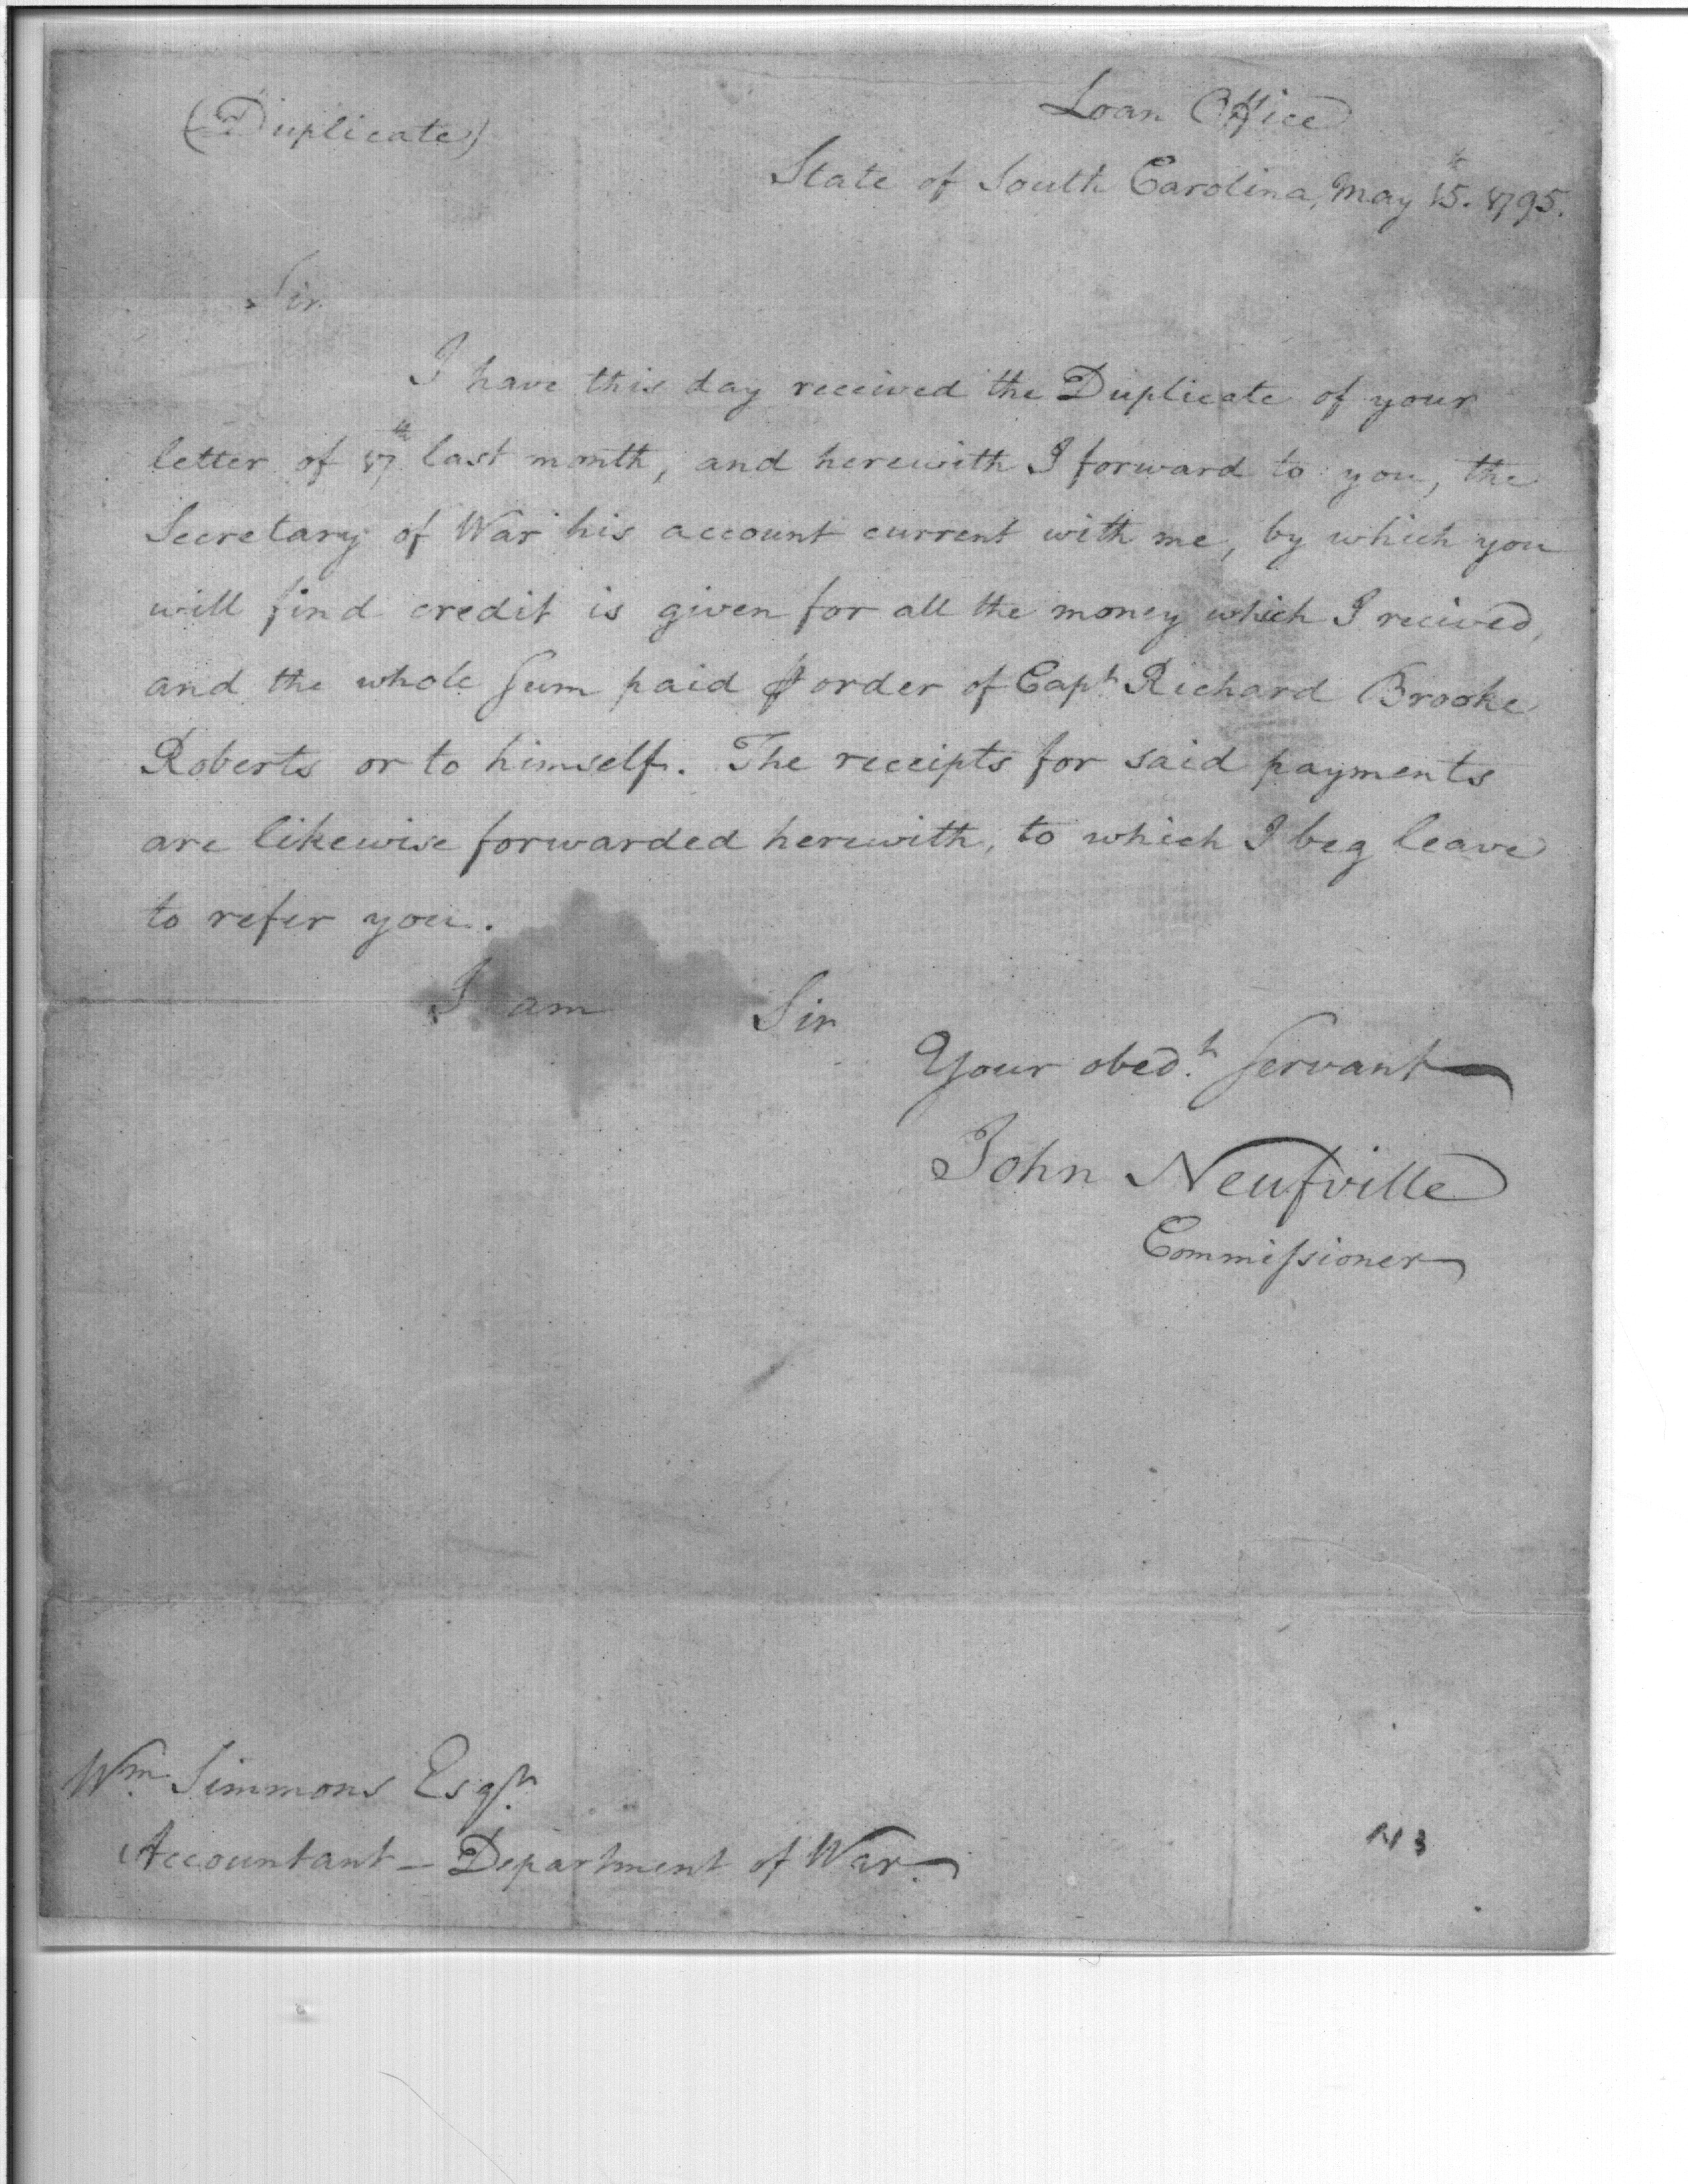 (Duplicate)
Loan Office
State of South Carolina, May 15th. 1795.
Sir
I have this day received the Duplicate of your
letter of 17th last month, and herewith I forward to you, the
Secretary of War his account current with me, by which you
will find credit is given for all the money which I recived,
and the whole sum paid ⅌ order of Capt Richard Brooke
Roberts or to himself. The receipts for said payments
are likewise forwarded herewith, to which I beg leave
to refer you.
I am Sir
Your obedt. servant
John Neufville
Commiſsioner
Wm. Simmons Esqr.
Accountant — Department of War.
N 3